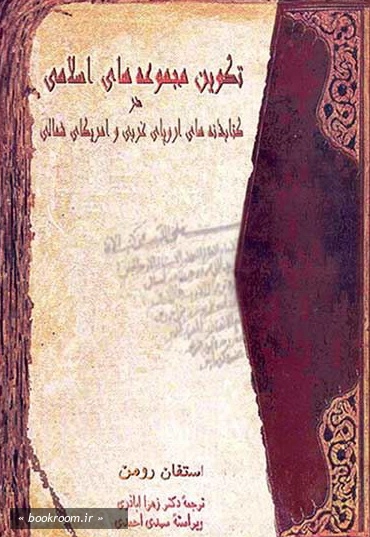 تکوین مجموعه های اسلامی
در
کتابخانه های اروپای غربی و امریکای شمالی
استفان رومن
ترجمهٔ دکتر زهرا اباذری
ویراستهٔ مهدی احمدی
« bookroom.ir »